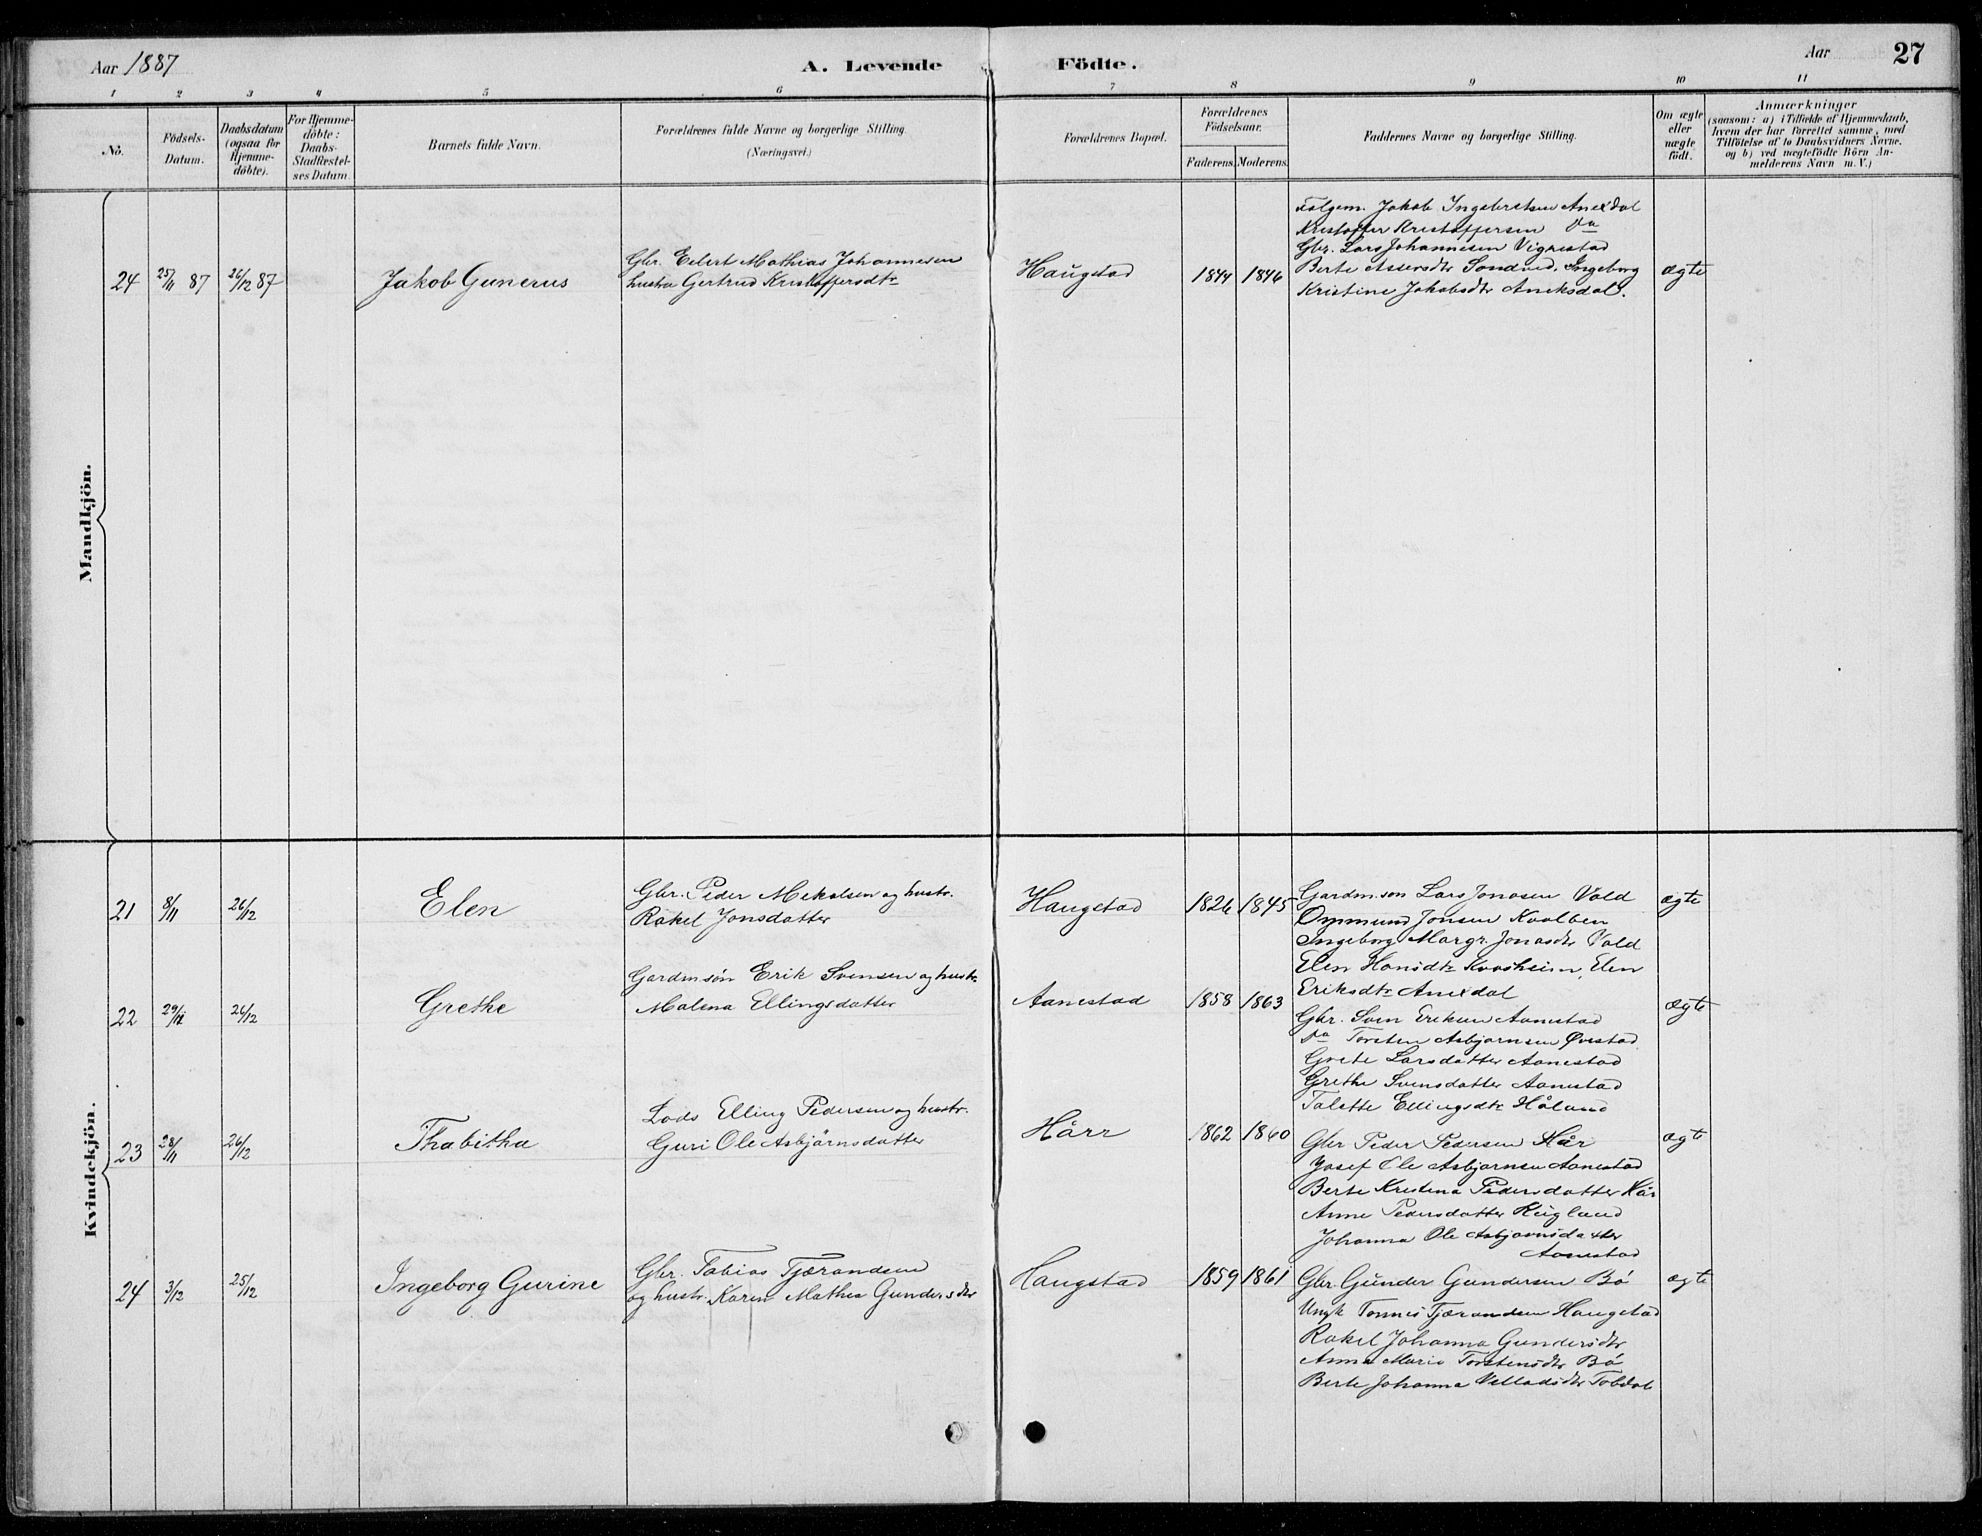 Aar 1887
A. Levende Födte.
Aar
27
1 2 3 4 5 6 7 8 9 10 11
No.
Födsels-Datum.
Daabsdatum (ogsaa for Hjemmedöbte).
For Hjemmedöbte: Daabs-Stadfæstelses Datum
Barnets fulde Navn.
Forældrenes fulde Navne og borgerlige Stilling.
(Næringsvei.)
Forældrenes Bopæl.
Forældrenes Födselsaar.
Faderens. Moderens.
Faddernes Navne og borgerlige Stilling.
Om ægte eller uægte födt.
Anmærkninger
(saasom: a) i Tilfælde af Hjemmedaab,
hvem der har forrettet samme, med
Tilföielse af to Daabsvidners Navne.
og b) ved uægtefödte Börn An-
melderens Navn m. V.)
Mandkjön.
24 25/11 87 26/12 87 Jakob Gunerus
Gbr. Eilert Mathias Johannesen
hustru Gertrud Kristoffersdtr
Haugstad 1844 1846
Folgem. Jakob Ingebretsen Anexdal
Kristoffer Kristoffersen do
Gbr. Lars Johannesen Vignestad
Berte Assersdtr Sondved, Ingeborg
Kristine Jakobsdtr Aneksdal.
ægte
Kvindekjön.
21 8/11 26/12 Elen
Gbr. Peder Mekalsen og hustr.
Rakel Jonsdatter
Haugstad 1826 1845
Gardm.søn Lars Jonasen Vold
Ommund Jonsen Kvalben
Ingeborg Margr. Jonasdtr Vold
Elen Hansdtr Kvasheim, Elen
Eriksdtr Anexdal
ægte
22 29/11 26/12 Grethe
Gardmsön Erik Svensen og hustr.
Malena Ellingsdatter
Aanestad 1858 1863
Gbr. Sven Eriksen Aanestad
do Torsten Asbjørnsen Øvestad
Grete Larsdatter Aanestad
Grethe Svensdatter Aanestad
Talette Ellingsdtr Håland
ægte
23 28/11 26/12 Thabitha
Lods Elling Pedersen og hustr.
Guri Ole Asbjörnsdatter
Hårr 1862 1860
Gbr Peder Pedersen Hår
Josef Ole Asbjørnsen Aanestad
Berte Kristena Pedersdatter Hår
Anne Pedersdatter Høgland
Johanna Ole Asbjørnsdatter
Aanestad
ægte
24 3/12 25/12 Ingeborg Gurine
Gbr. Tobias Tjærandsen
og hustr. Karen Mathea Gundersdtr
Haugstad 1859 1861
Gbr. Gunder Gundersen Bø
Ungk Tønnes Tjærandsen Haugstad
Rakel Johanna Gundersdtr
Anna Marie Torstensdtr Bø
Berte Johanna Villadsdtr
ægte